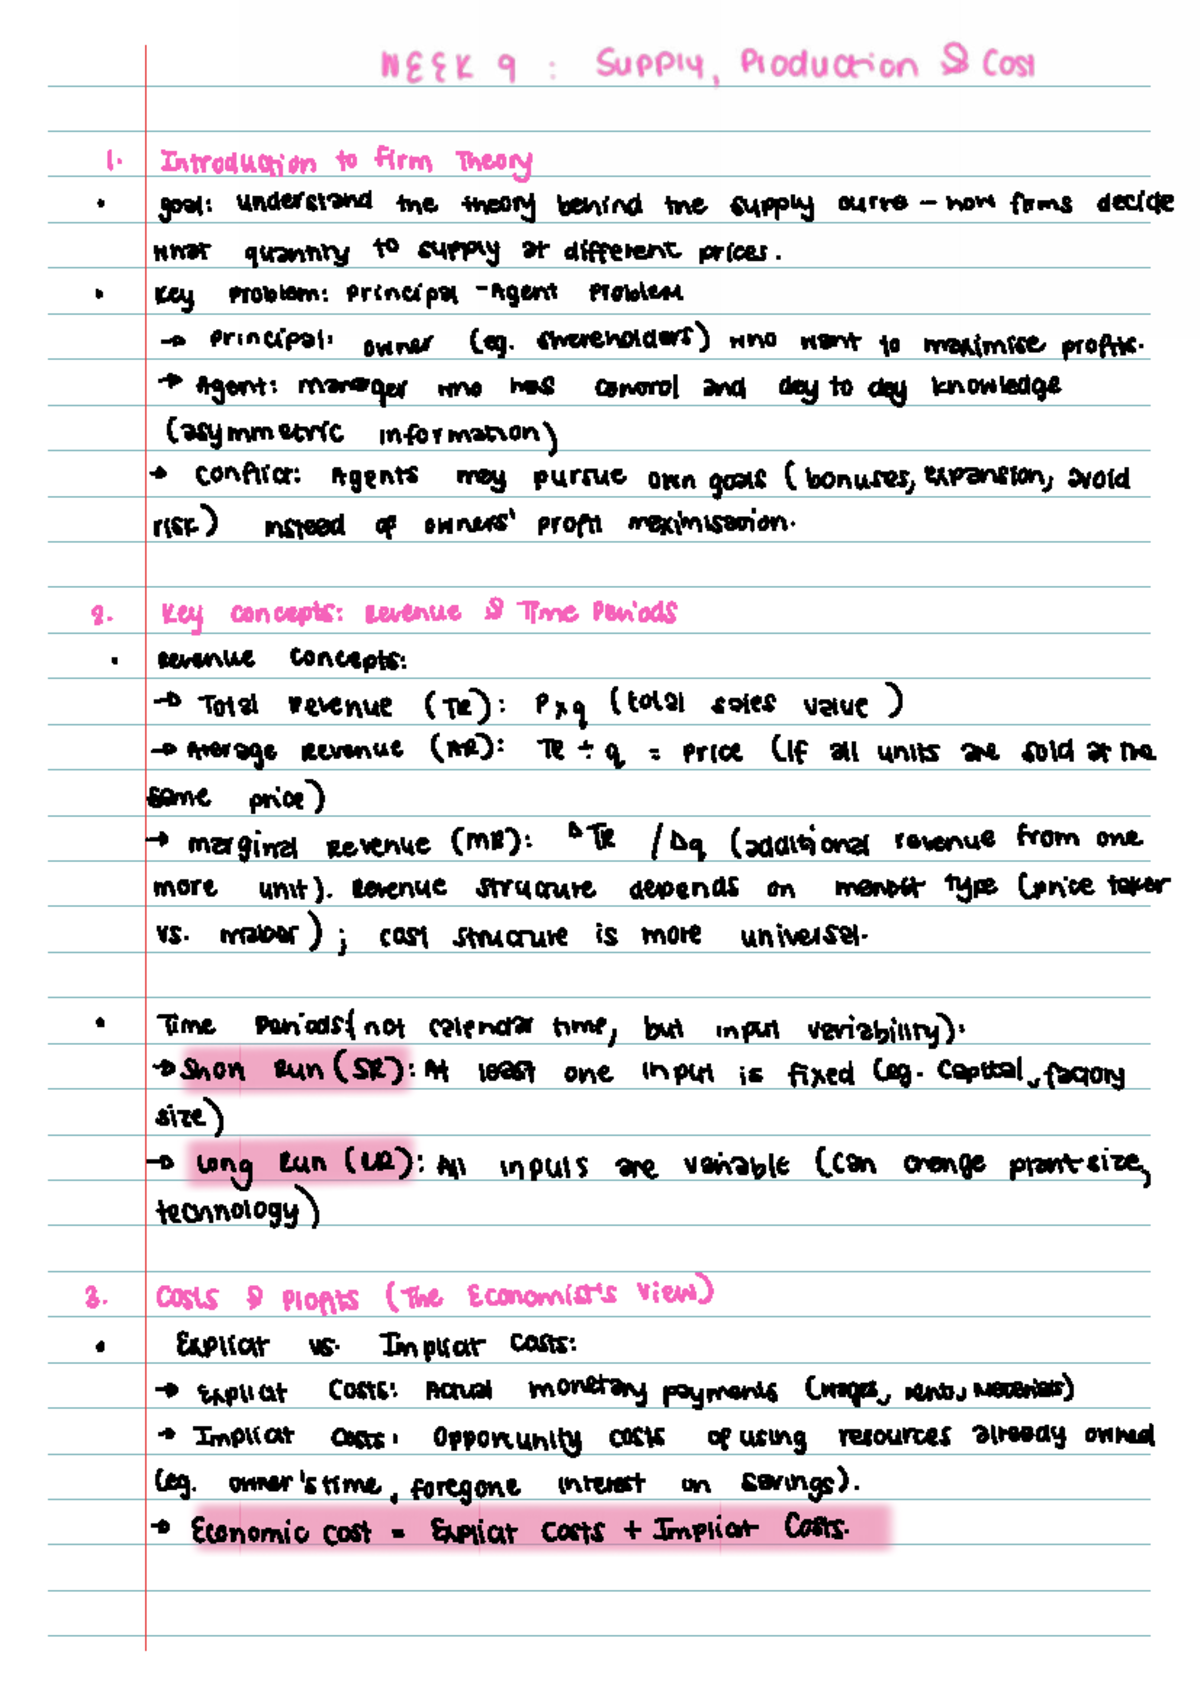 WEEK 9 : Supply, Production & Cost
1. Introduction to Firm Theory
• goal: understand the theory behind the supply curve - how firms decide
what quantity to supply at different prices.
• Key Problem: Principal - Agent Problem
→ Principal: owner (eg. shareholders) who want to maximise profits.
→ Agent: manager who has control and day to day knowledge
(asymmetric information)
→ Conflict: Agents may pursue own goals (bonuses, expansion, avoid
risk) instead of owners' profit maximisation.
2. Key Concepts: Revenue & Time Periods
• Revenue Concepts:
→ Total Revenue (TR): P x q (total sales value)
→ Average Revenue (AR): TR ÷ q = Price (if all units are sold at the
same price)
→ marginal Revenue (MR): ΔTR / Δq (additional revenue from one
more unit). Revenue structure depends on market type (price taker
vs. maker) ; cost structure is more universal.
• Time Periods (not calendar time, but input variability):
→ Short Run (SR): At least one input is fixed (eg. Capital, factory
size)
→ Long Run (LR): All inputs are variable (can change plant size,
technology)
3. Costs & Profits (The Economist's View)
• Explicit vs. Implicit Costs:
→ Explicit Costs: Actual monetary payments (wages, rent, materials)
→ Implicit Costs: Opportunity costs of using resources already owned
(eg. owner's time, foregone interest on savings).
→ Economic cost = Explicit Costs + Implicit Costs.